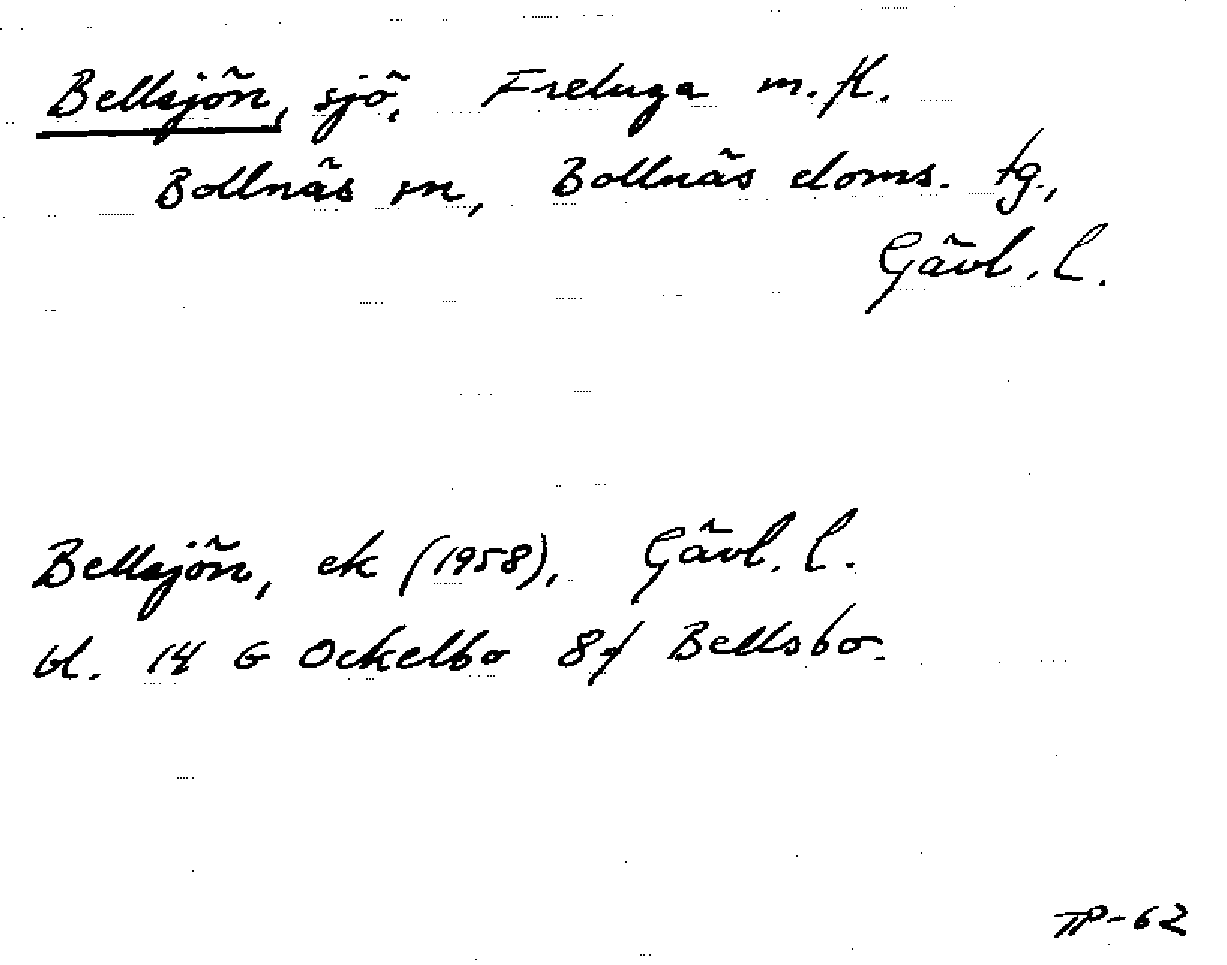 Bellsjön, sjö, Freluga m.fl.
Bollnäs sn, Bollnäs doms. tg.,
Gävl. l.
Bellsjön, ek (1958), Gävl. l.
bl. 14 G Ockelbo 8f Bellsbo.
TP-62